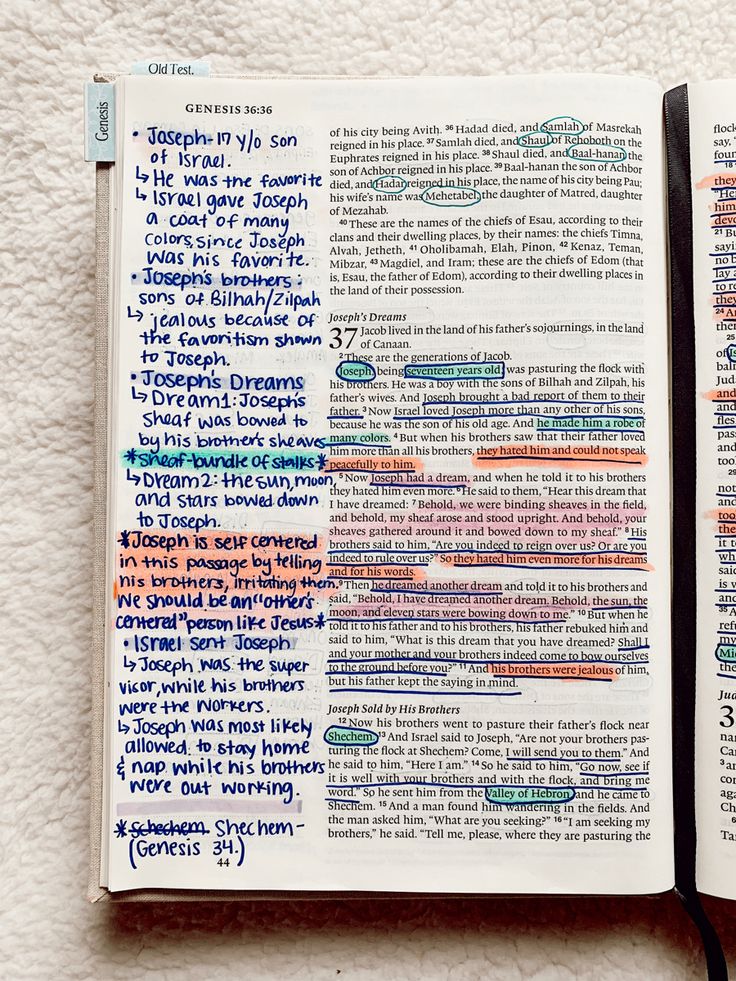 Old Test.
Genesis
GENESIS 36:36
• Joseph-17 y/o son
of Israel.
↳ He was the favorite
↳ Israel gave Joseph
a coat of many
colors, since Joseph
was his favorite.
• Joseph's brothers:
sons of Bilhah/Zilpah
↳ jealous because of
the favoritism shown
to Joseph.
• Joseph's Dreams
↳ Dream 1: Joseph's
sheaf was bowed to
by his brother's sheaves
*sheaf-bundle of stalks*
↳ Dream 2: the sun, moon,
and stars bowed down
to Joseph.
*Joseph is self centered
in this passage by telling
his brothers, irritating them.
We should be an "others
centered" person like Jesus*
• Israel sent Joseph
↳ Joseph was the super
visor, while his brothers
were the workers.
↳ Joseph was most likely
allowed to stay home
& nap while his brothers
were out working.
* Schechem Shechem-
(Genesis 34.)
44
of his city being Avith. 36 Hadad died, and Samlah of Masrekah
reigned in his place. 37 Samlah died, and Shaul of Rehoboth on the
Euphrates reigned in his place. 38 Shaul died, and Baal-hanan the
son of Achbor reigned in his place. 39 Baal-hanan the son of Achbor
died, and Hadar reigned in his place, the name of his city being Pau;
his wife's name was Mehetabel, the daughter of Matred, daughter
of Mezahab.
40 These are the names of the chiefs of Esau, according to their
clans and their dwelling places, by their names: the chiefs Timna,
Alvah, Jetheth, 41 Oholibamah, Elah, Pinon, 42 Kenaz, Teman,
Mibzar, 43 Magdiel, and Iram; these are the chiefs of Edom (that
is, Esau, the father of Edom), according to their dwelling places in
the land of their possession.
Joseph's Dreams
37 Jacob lived in the land of his father's sojournings, in the land
of Canaan.
2 These are the generations of Jacob.
Joseph, being seventeen years old, was pasturing the flock with
his brothers. He was a boy with the sons of Bilhah and Zilpah, his
father's wives. And Joseph brought a bad report of them to their
father. 3 Now Israel loved Joseph more than any other of his sons,
because he was the son of his old age. And he made him a robe of
many colors. 4 But when his brothers saw that their father loved
him more than all his brothers, they hated him and could not speak
peacefully to him.
5 Now Joseph had a dream, and when he told it to his brothers
they hated him even more. 6 He said to them, "Hear this dream that
I have dreamed: 7 Behold, we were binding sheaves in the field,
and behold, my sheaf arose and stood upright. And behold, your
sheaves gathered around it and bowed down to my sheaf." 8 His
brothers said to him, "Are you indeed to reign over us? Or are you
indeed to rule over us?" So they hated him even more for his dreams
and for his words.
9 Then he dreamed another dream and told it to his brothers and
said, "Behold, I have dreamed another dream. Behold, the sun, the
moon, and eleven stars were bowing down to me." 10 But when he
told it to his father and to his brothers, his father rebuked him and
said to him, "What is this dream that you have dreamed? Shall I
and your mother and your brothers indeed come to bow ourselves
to the ground before you?" 11 And his brothers were jealous of him,
but his father kept the saying in mind.
Joseph Sold by His Brothers
12 Now his brothers went to pasture their father's flock near
Shechem. 13 And Israel said to Joseph, "Are not your brothers pas-
turing the flock at Shechem? Come, I will send you to them." And
he said to him, "Here I am." 14 So he said to him, "Go now, see if
it is well with your brothers and with the flock, and bring me
word." So he sent him from the Valley of Hebron, and he came to
Shechem. 15 And a man found him wandering in the fields. And
the man asked him, "What are you seeking?" 16 "I am seeking my
brothers," he said. "Tell me, please, where they are pasturing the